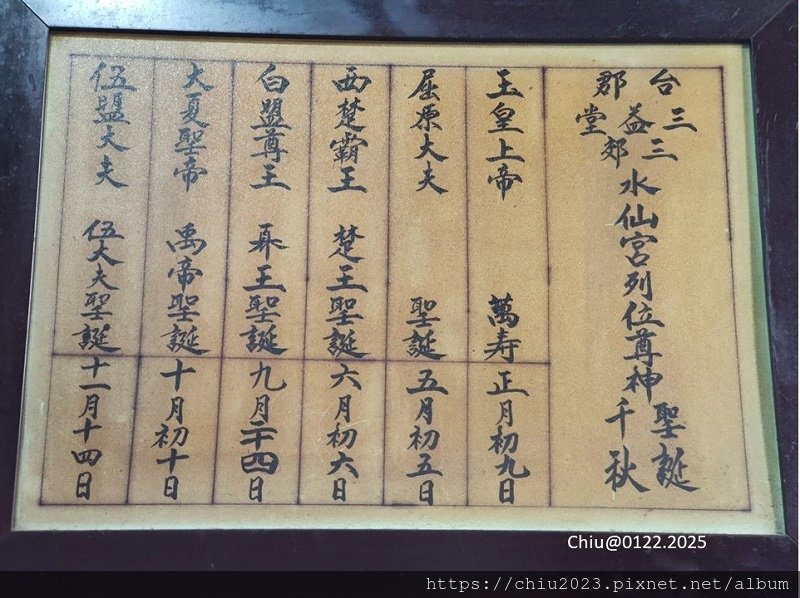 台郡三益堂三郊水仙宮列位尊神聖誕千秋
玉皇上帝 萬寿 正月初九日
屈原大夫 聖誕 五月初五日
西楚霸王 楚王聖誕 六月初六日
白盟尊王 奡王聖誕 九月二十四日
大夏聖帝 禹帝聖誕 十月初十日
伍盟大夫 伍大夫聖誕 十一月十四日
Chiu@0122.2025
https://chiu2023.pixnet.net/album